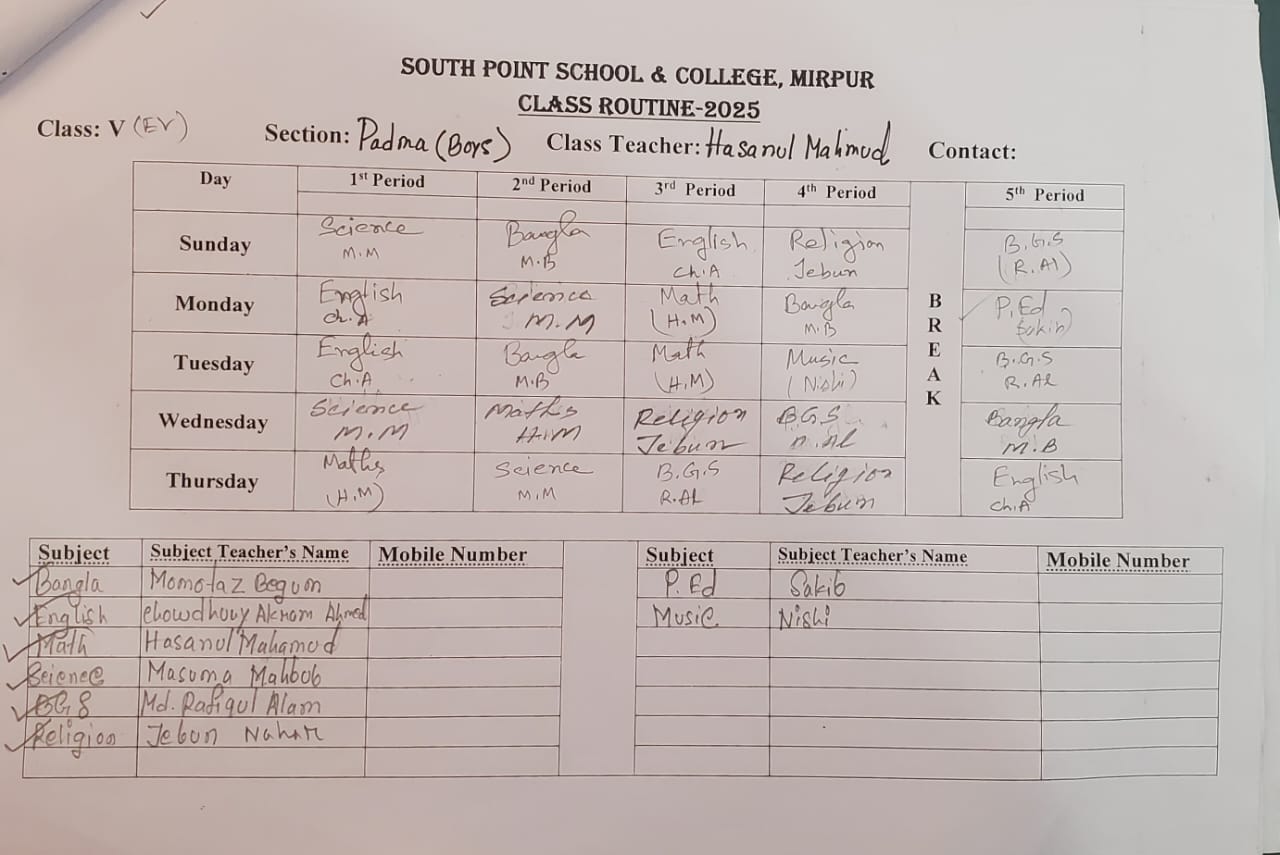 SOUTH POINT SCHOOL & COLLEGE, MIRPUR
CLASS ROUTINE-2025
Class: V (EV) Section: Padma (Boys) Class Teacher: Hasanul Mahmud Contact:
Day 1st Period 2nd Period 3rd Period 4th Period BREAK 5th Period
Sunday Science Bangla English Religion B.G.S
M.M M.B Ch.A Jebun (R.Al)
Monday English Science Math Bangla P.Ed
Ch.A M.M (H.M) M.B
Tuesday English Bangla Math Music B.G.S
Ch.A M.B (H.M) (Nishi) R.Al
Wednesday Science Maths Religion BGS Bangla
M.M H.M Jebun M.B
Thursday Maths Science B.G.S Religion English
(H.M) M.M R.AL Jebun Ch.A
Subject Subject Teacher's Name Mobile Number Subject Subject Teacher's Name Mobile Number
Bangla Momotaz Begum P.Ed Sakib
English Chowdhouy Akram Ahmed Music Nishi
Math Hasanul Mahamud
Science Masuma Mahbob
BGS Md. Rafiqul Alam
Religion Jebun Nahar